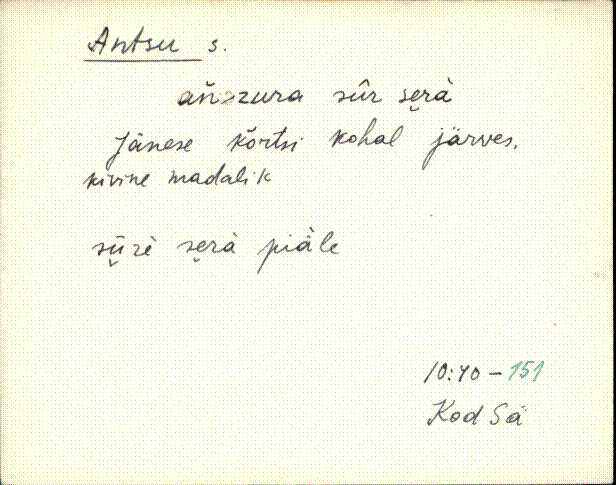 Antsu s.
añzura sûr se̮rà
Jänese kõrtsi kohal järves.
kivine madalik
sṷ̄rè se̮rà piä̀le
10:40 – 151
Kod Sä